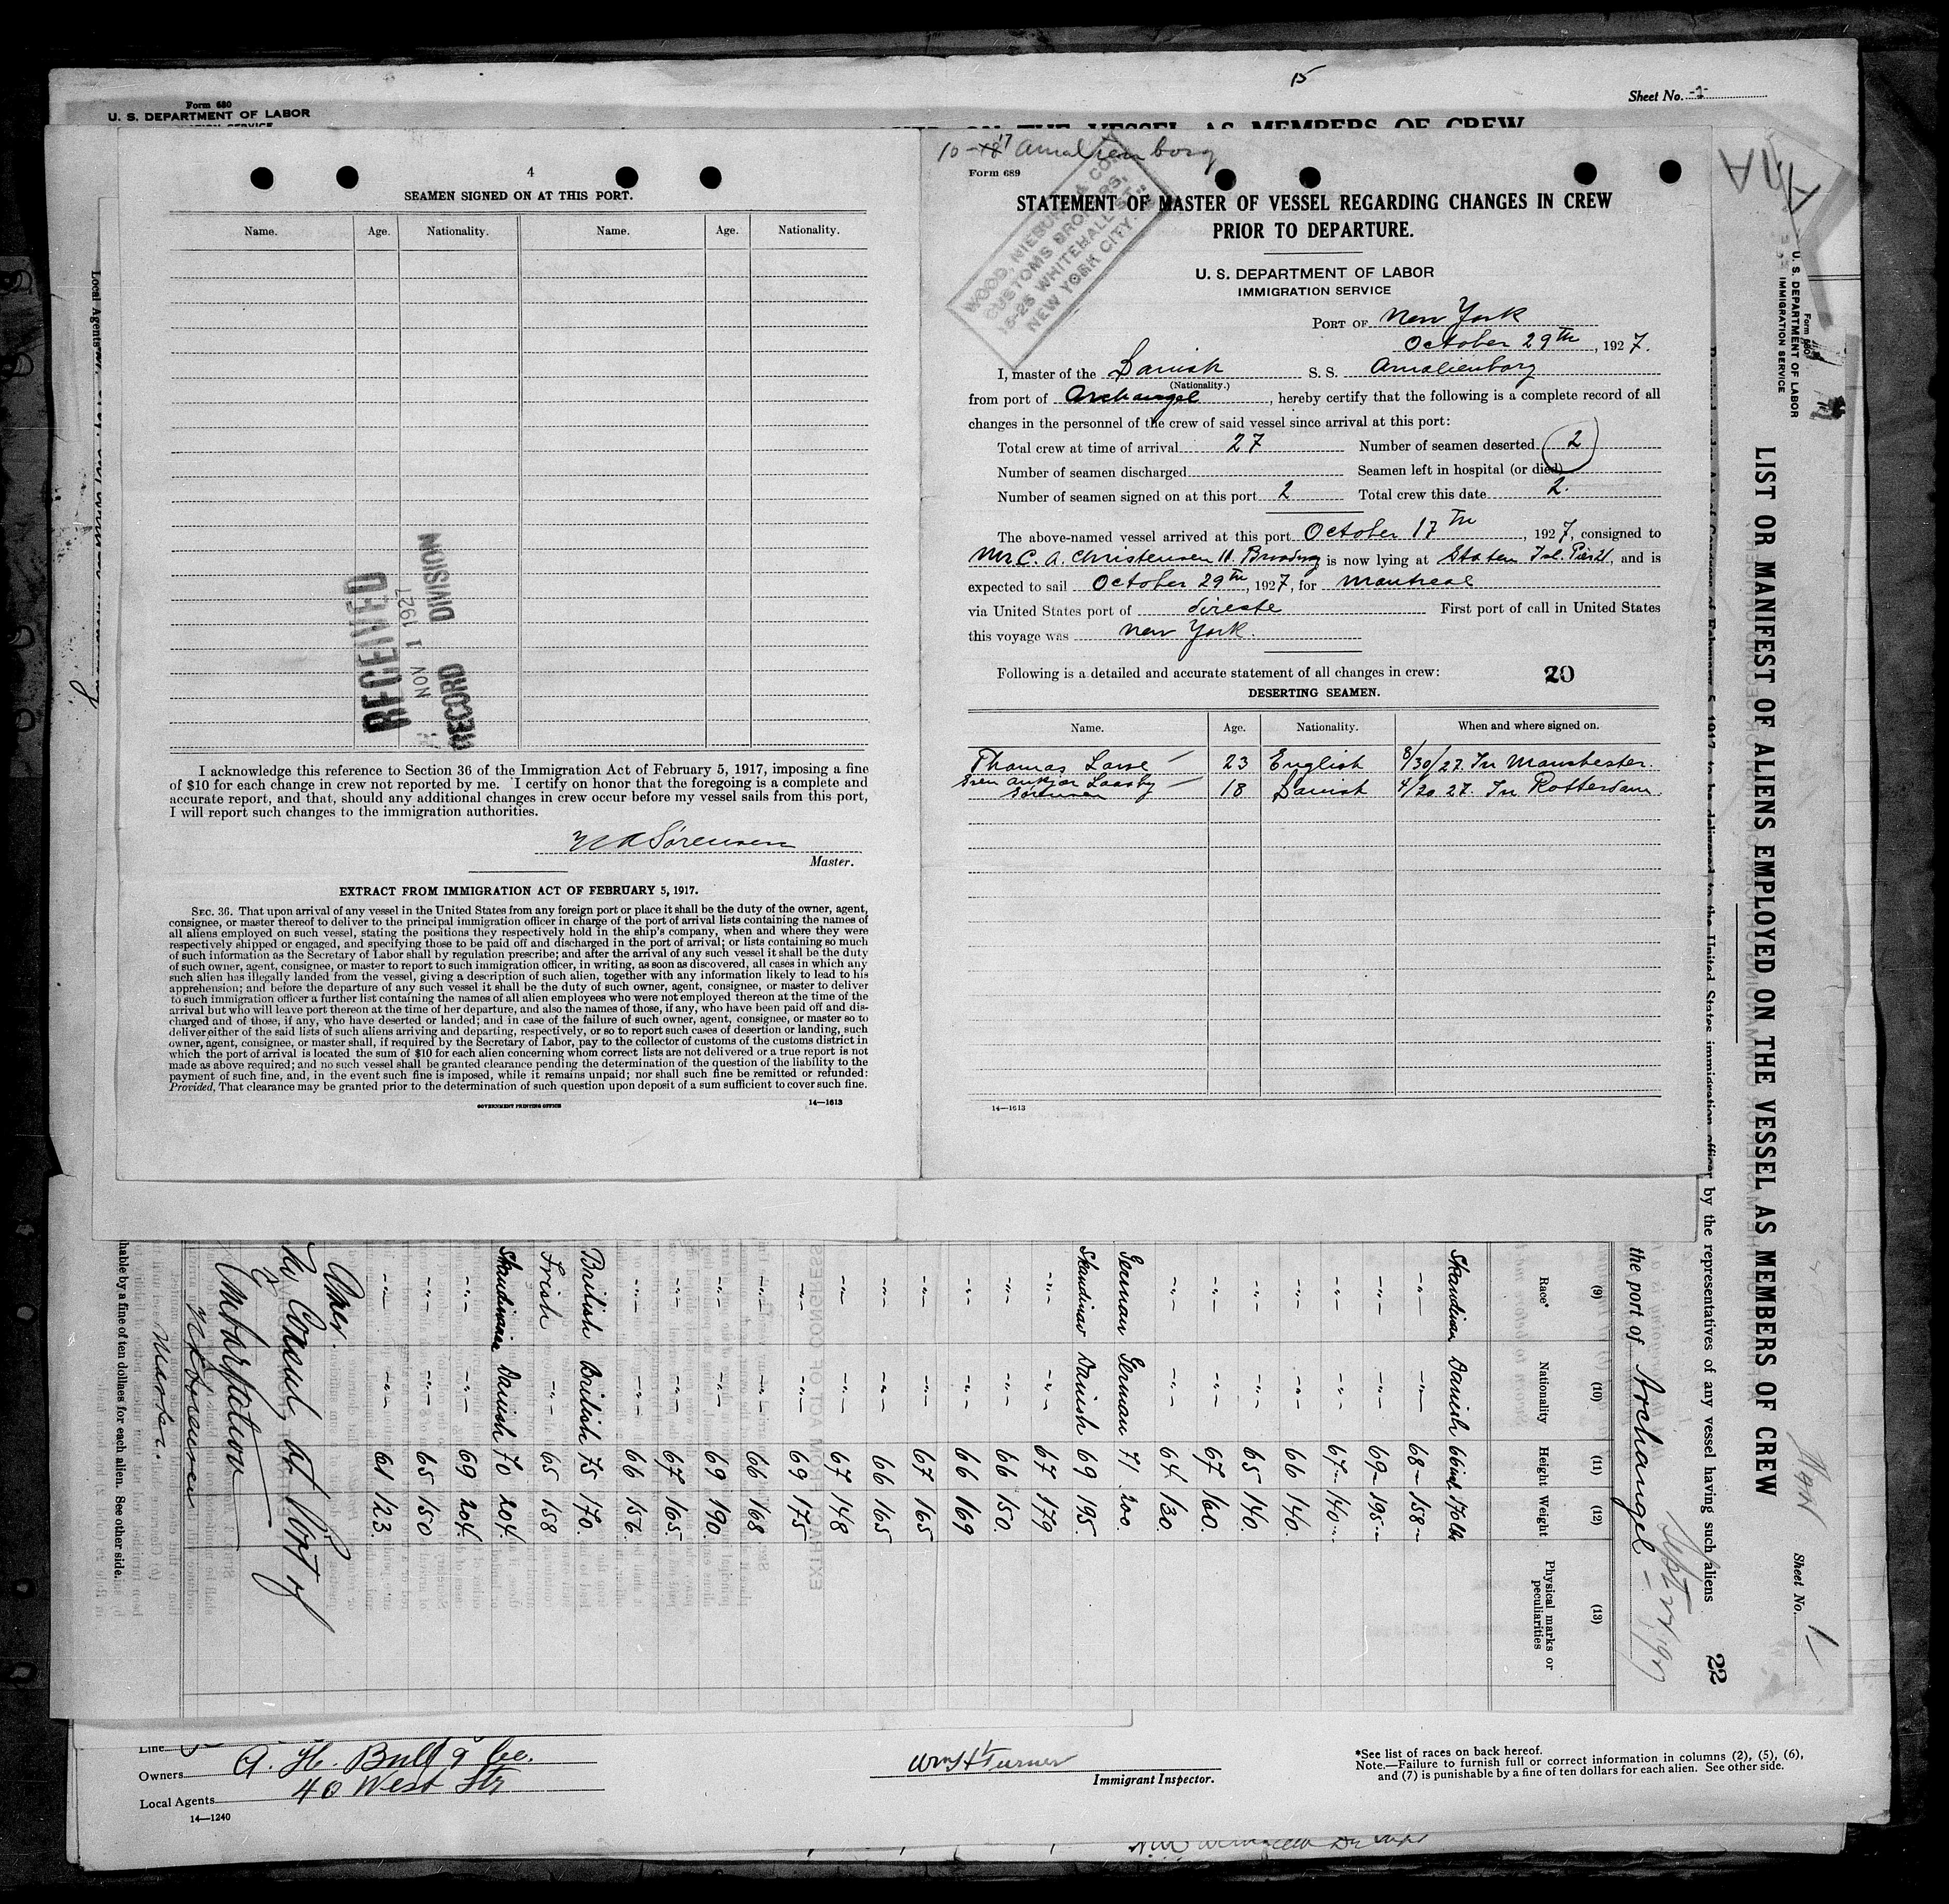 15
Sheet No. -1-
Form 680
U. S. DEPARTMENT OF LABOR
ON THE VESSEL AS MEMBERS OF CREW
4
SEAMEN SIGNED ON AT THIS PORT.
Name. Age. Nationality. Name. Age. Nationality.
RECEIVED
NOV 1 1927
RECORD DIVISION
I acknowledge this reference to Section 36 of the Immigration Act of February 5, 1917, imposing a fine
of $10 for each change in crew not reported by me. I certify on honor that the foregoing is a complete and
accurate report, and that, should any additional changes in crew occur before my vessel sails from this port,
I will report such changes to the immigration authorities.
Sørensen
Master.
EXTRACT FROM IMMIGRATION ACT OF FEBRUARY 5, 1917.
SEC. 36. That upon arrival of any vessel in the United States from any foreign port or place it shall be the duty of the owner, agent,
consignee, or master thereof to deliver to the principal immigration officer in charge of the port of arrival lists containing the names of
all aliens employed on such vessel, stating the positions they respectively hold in the ship's company, when and where they were
respectively shipped or engaged, and specifying those to be paid off and discharged in the port of arrival; or lists containing so much
of such information as the Secretary of Labor shall by regulation prescribe; and after the arrival of any such vessel it shall be the duty
of such owner, agent, consignee, or master to report to such immigration officer, in writing, as soon as discovered, all cases in which any
such alien has illegally landed from the vessel, giving a description of such alien, together with any information likely to lead to his
apprehension; and before the departure of any such vessel it shall be the duty of such owner, agent, consignee, or master to deliver
to such immigration officer a further list containing the names of all alien employees who were not employed thereon at the time of the
arrival but who will leave port thereon at the time of her departure, and also the names of those, if any, who have been paid off and dis-
charged and of those, if any, who have deserted or landed; and in case of the failure of such owner, agent, consignee, or master so to
deliver either of the said lists of such aliens arriving and departing, respectively, or so to report such cases of desertion or landing, such
owner, agent, consignee, or master shall, if required by the Secretary of Labor, pay to the collector of customs of the customs district in
which the port of arrival is located the sum of $10 for each alien concerning whom correct lists are not delivered or a true report is not
made as above required; and no such vessel shall be granted clearance pending the determination of the question of the liability to the
payment of such fine, and, in the event such fine is imposed, while it remains unpaid; nor shall such fine be remitted or refunded:
Provided, That clearance may be granted prior to the determination of such question upon deposit of a sum sufficient to cover such fine.
GOVERNMENT PRINTING OFFICE 14—1613
10-17 Amalienborg
Form 689
WOOD, NIEBUHR & CO.
CUSTOMS BROKERS,
15-25 WHITEHALL ST.
NEW YORK CITY.
STATEMENT OF MASTER OF VESSEL REGARDING CHANGES IN CREW
PRIOR TO DEPARTURE.
U. S. DEPARTMENT OF LABOR
IMMIGRATION SERVICE
PORT OF New York
October 29th, 1927.
I, master of the Danish S. S. Amalienborg
(Nationality.)
from port of Archangel, hereby certify that the following is a complete record of all
changes in the personnel of the crew of said vessel since arrival at this port:
Total crew at time of arrival 27 Number of seamen deserted 2
Number of seamen discharged Seamen left in hospital (or died)
Number of seamen signed on at this port 2 Total crew this date 2.
The above-named vessel arrived at this port October 17th, 1927, consigned to
Mr C. A. Christensen 11. Broadwy is now lying at Staten Isl. Pier 21, and is
expected to sail October 29th, 1927, for Montreal
via United States port of direste First port of call in United States
this voyage was New York.
Following is a detailed and accurate statement of all changes in crew: 20
DESERTING SEAMEN.
Name. Age. Nationality. When and where signed on.
Thomas Lowe 23 English 8/30/27. In Manchester.
Sven Laasby Sørensen 18 Danish 4/20 27. In Rotterdam.
14—1613
Form 680
U. S. DEPARTMENT OF LABOR
IMMIGRATION SERVICE
LIST OR MANIFEST OF ALIENS EMPLOYED ON THE VESSEL AS MEMBERS OF CREW
Sheet No. 1
by the representatives of any vessel having such aliens 22
the port of Archangel - Sept 22 1927
(9) (10) (11) (12) (13)
Race* Nationality Height Weight Physical marks or peculiarities
Skandinav Danish 66 ins 170 lbs
-"- -"- 68 158
-"- -"- 69 195
-"- -"- 67 140
-"- -"- 66 140
-"- -"- 65 140
-"- -"- 67 160
-"- -"- 64 130
German German 71 200
Skandinav Danish 69 195
-"- -"- 67 179
-"- -"- 66 150
-"- -"- 66 169
-"- -"- 67 165
-"- -"- 66 165
-"- -"- 67 148
-"- -"- 69 175
-"- -"- 66 168
-"- -"- 69 190
-"- -"- 67 165
-"- -"- 66 156
British British 75 170
Irish -"- 65 158
Skandinavian Danish 70 204
-"- -"- 69 204
-"- -"- 65 150
-"- -"- 61 123
Amer. Consul, at Port of
Embarkation
Sørensen
Master.
Local Agents
Line
Owners A. H. Bull & Co.
Local Agents 40 West Str
14—1240
Wm H Turner
Immigrant Inspector.
*See list of races on back hereof.
Note.—Failure to furnish full or correct information in columns (2), (5), (6),
and (7) is punishable by a fine of ten dollars for each alien. See other side.